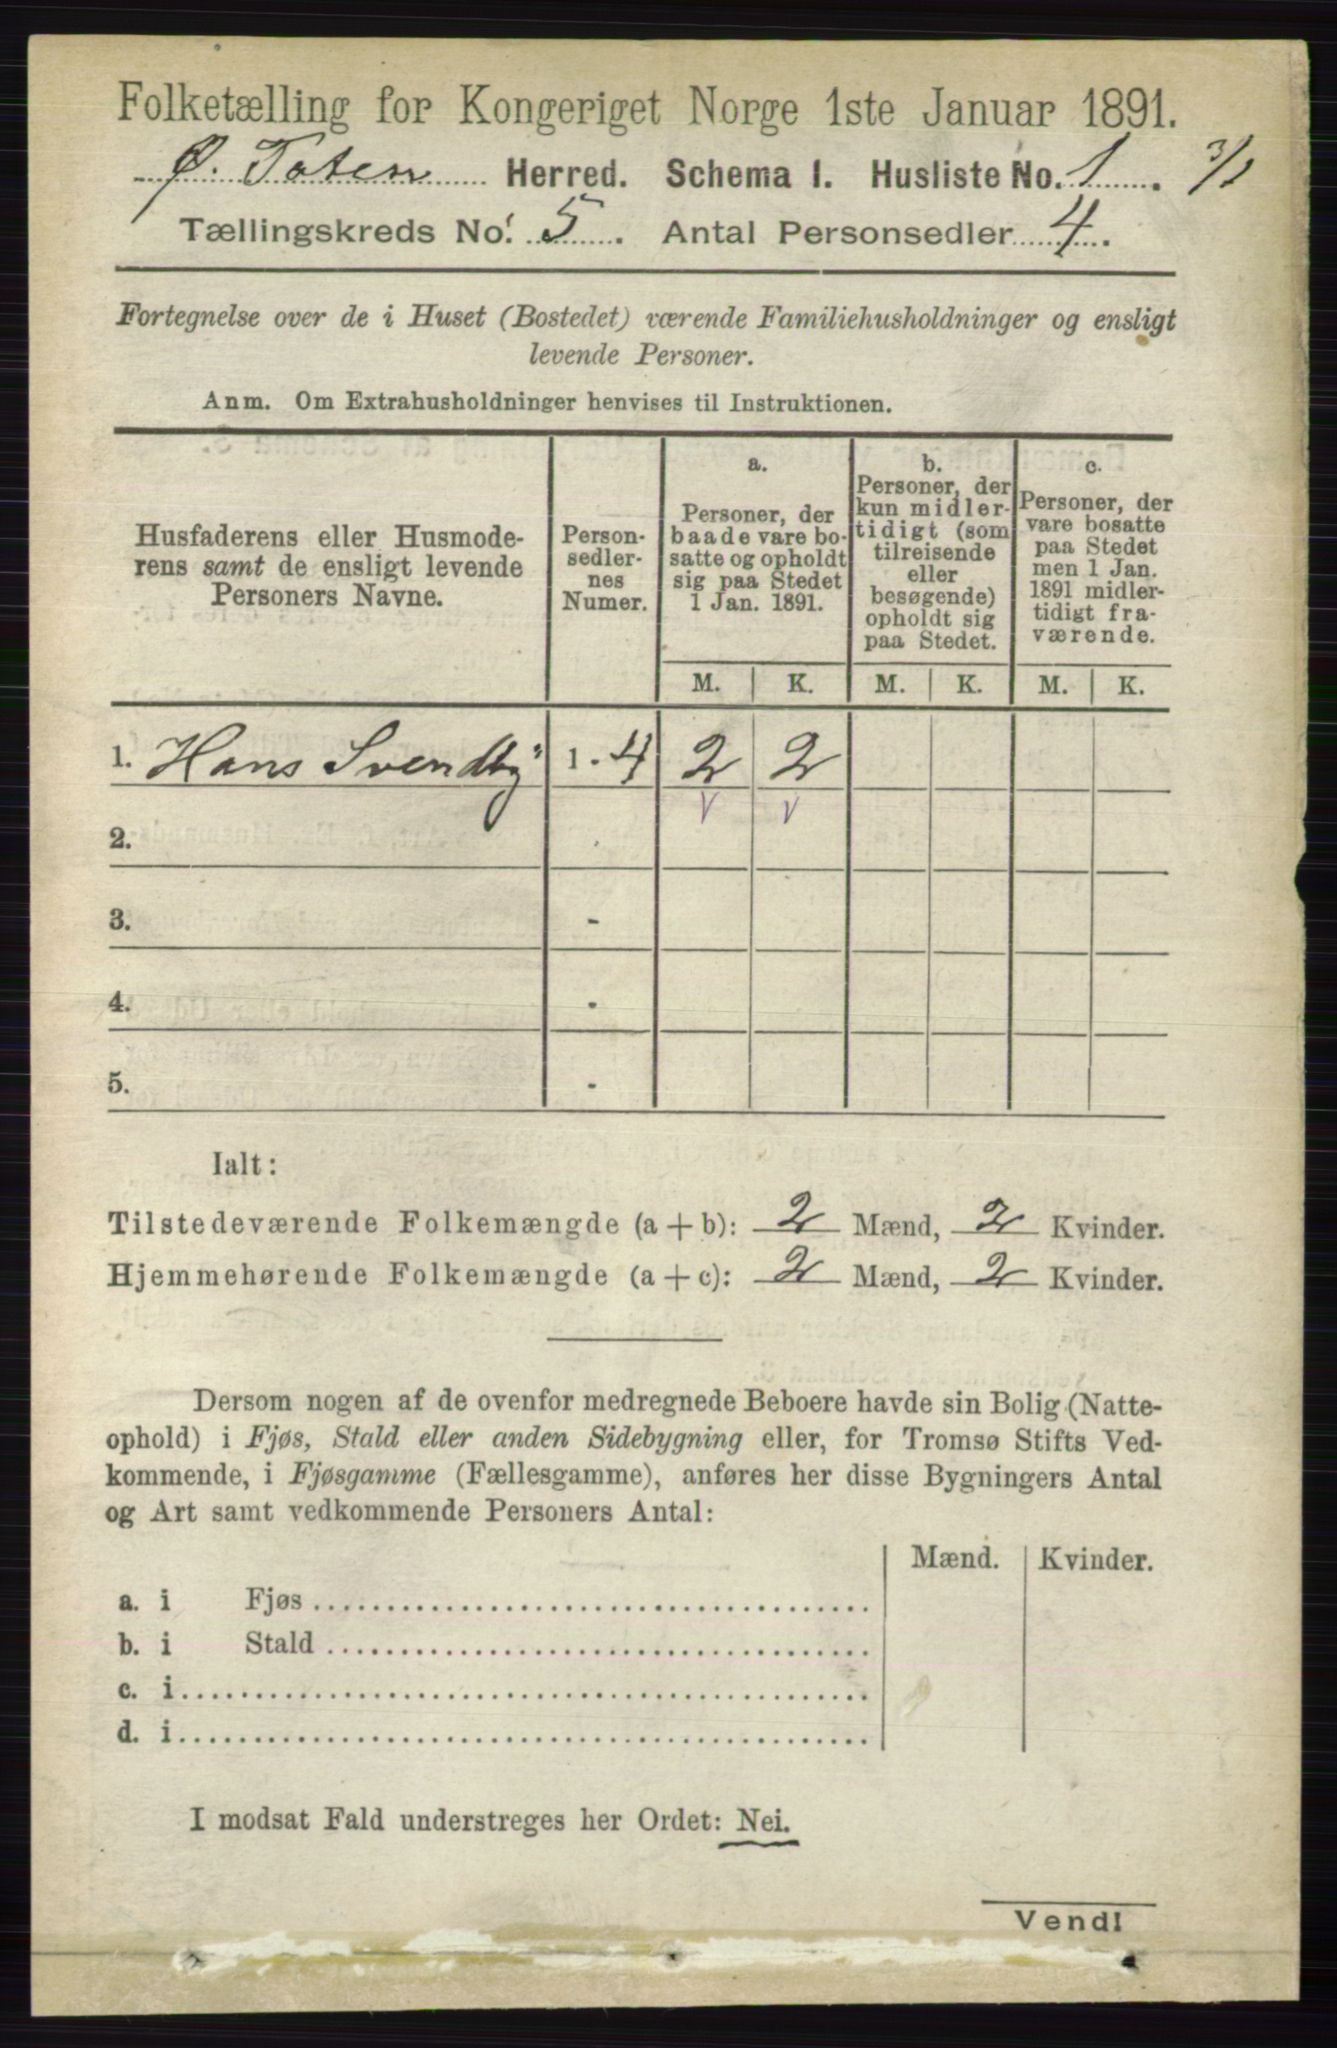 Folketælling for Kongeriget Norge 1ste Januar 1891.
Ø. Toten Herred. Schema I. Husliste No. 1. 3/1
Tællingskreds No. 5. Antal Personsedler 4.
Fortegnelse over de i Huset (Bostedet) værende Familiehusholdninger og ensligt
levende Personer.
Anm. Om Extrahusholdninger henvises til Instruktionen.
Husfaderens eller Husmode-
rens samt de ensligt levende
Personers Navne.
Person-
sedler-
nes
Numer.
a.
Personer, der
baade vare bo-
satte og opholdt
sig paa Stedet
1 Jan. 1891.
b.
Personer, der
kun midler-
tidigt (som
tilreisende
eller
besøgende)
opholdt sig
paa Stedet.
c.
Personer, der
vare bosatte
paa Stedet
men 1 Jan.
1891 midler-
tidigt fra-
værende.
M. K. M. K. M. K.
1. Hans Svendby 1 - 4 2 2
2. -
3. -
4. -
5. -
Ialt:
Tilstedeværende Folkemængde (a + b): 2 Mænd, 2 Kvinder.
Hjemmehørende Folkemængde (a + c): 2 Mænd, 2 Kvinder.
Dersom nogen af de ovenfor medregnede Beboere havde sin Bolig (Natte-
ophold) i Fjøs, Stald eller anden Sidebygning eller, for Tromsø Stifts Ved-
kommende, i Fjøsgamme (Fællesgamme), anføres her disse Bygningers Antal
og Art samt vedkommende Personers Antal:
Mænd. Kvinder.
a. i Fjøs
b. i Stald
c. i
d. i
I modsat Fald understreges her Ordet: Nei.
Vend!